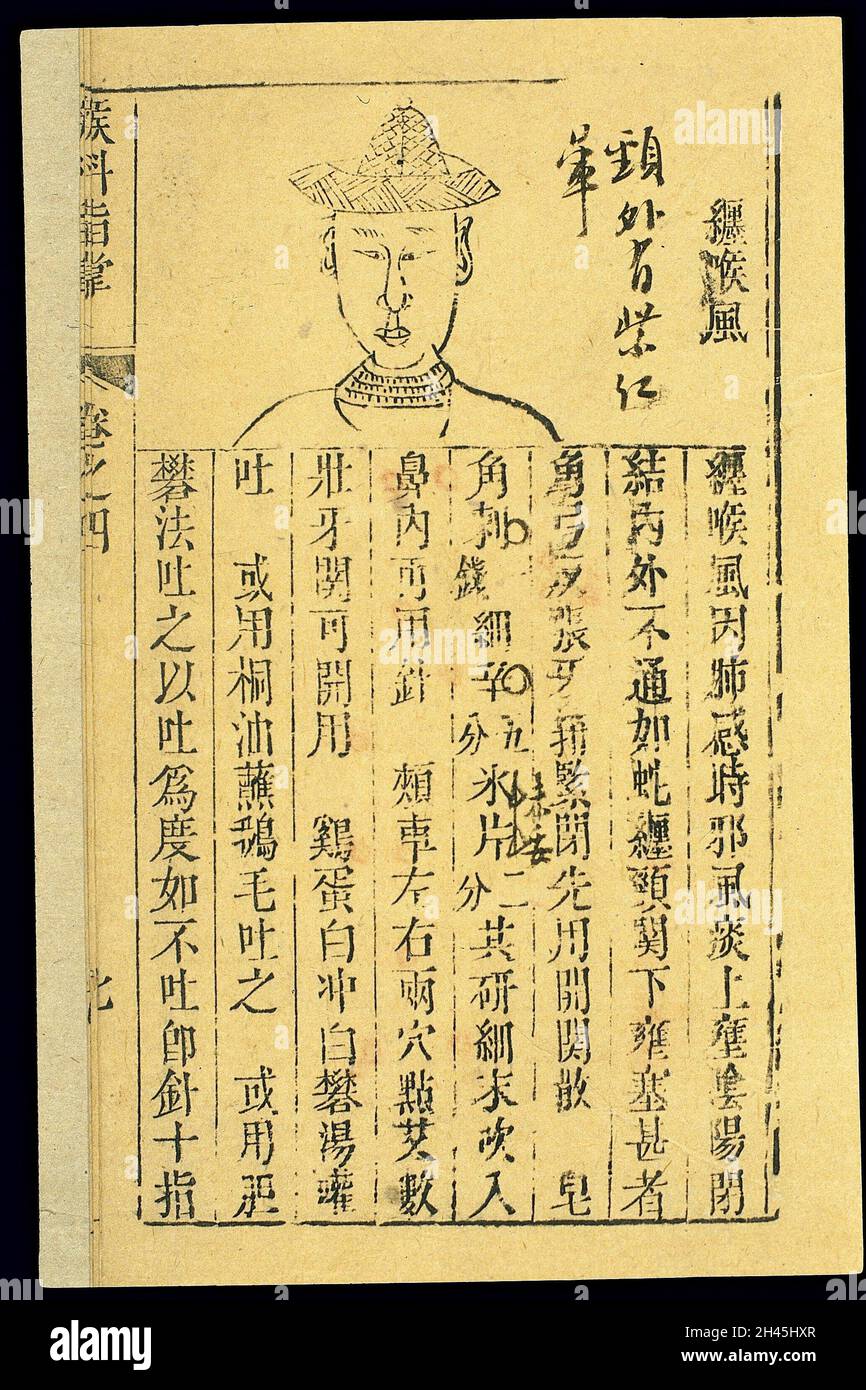 纏喉風
頸外有紫红
暈
纏喉風因肺感時邪風痰上壅陰陽閉
結內外不通如蛇纏頸関下壅塞甚者
角弓反張牙緊閉先用開関散 皂
角刺 錢 細辛 五分 氷片 二分 共研細末吹入
鼻內再用針 頰車左右兩穴點艾數
壯牙関可開用 鷄蛋白冲白礬湯灌
吐 或用桐油蘸鵝毛吐之 或用胆
礬法吐之以吐為度如不吐卽針十指
喉科指掌
卷之四
alamy
Image ID: 2H45HXR
www.alamy.com